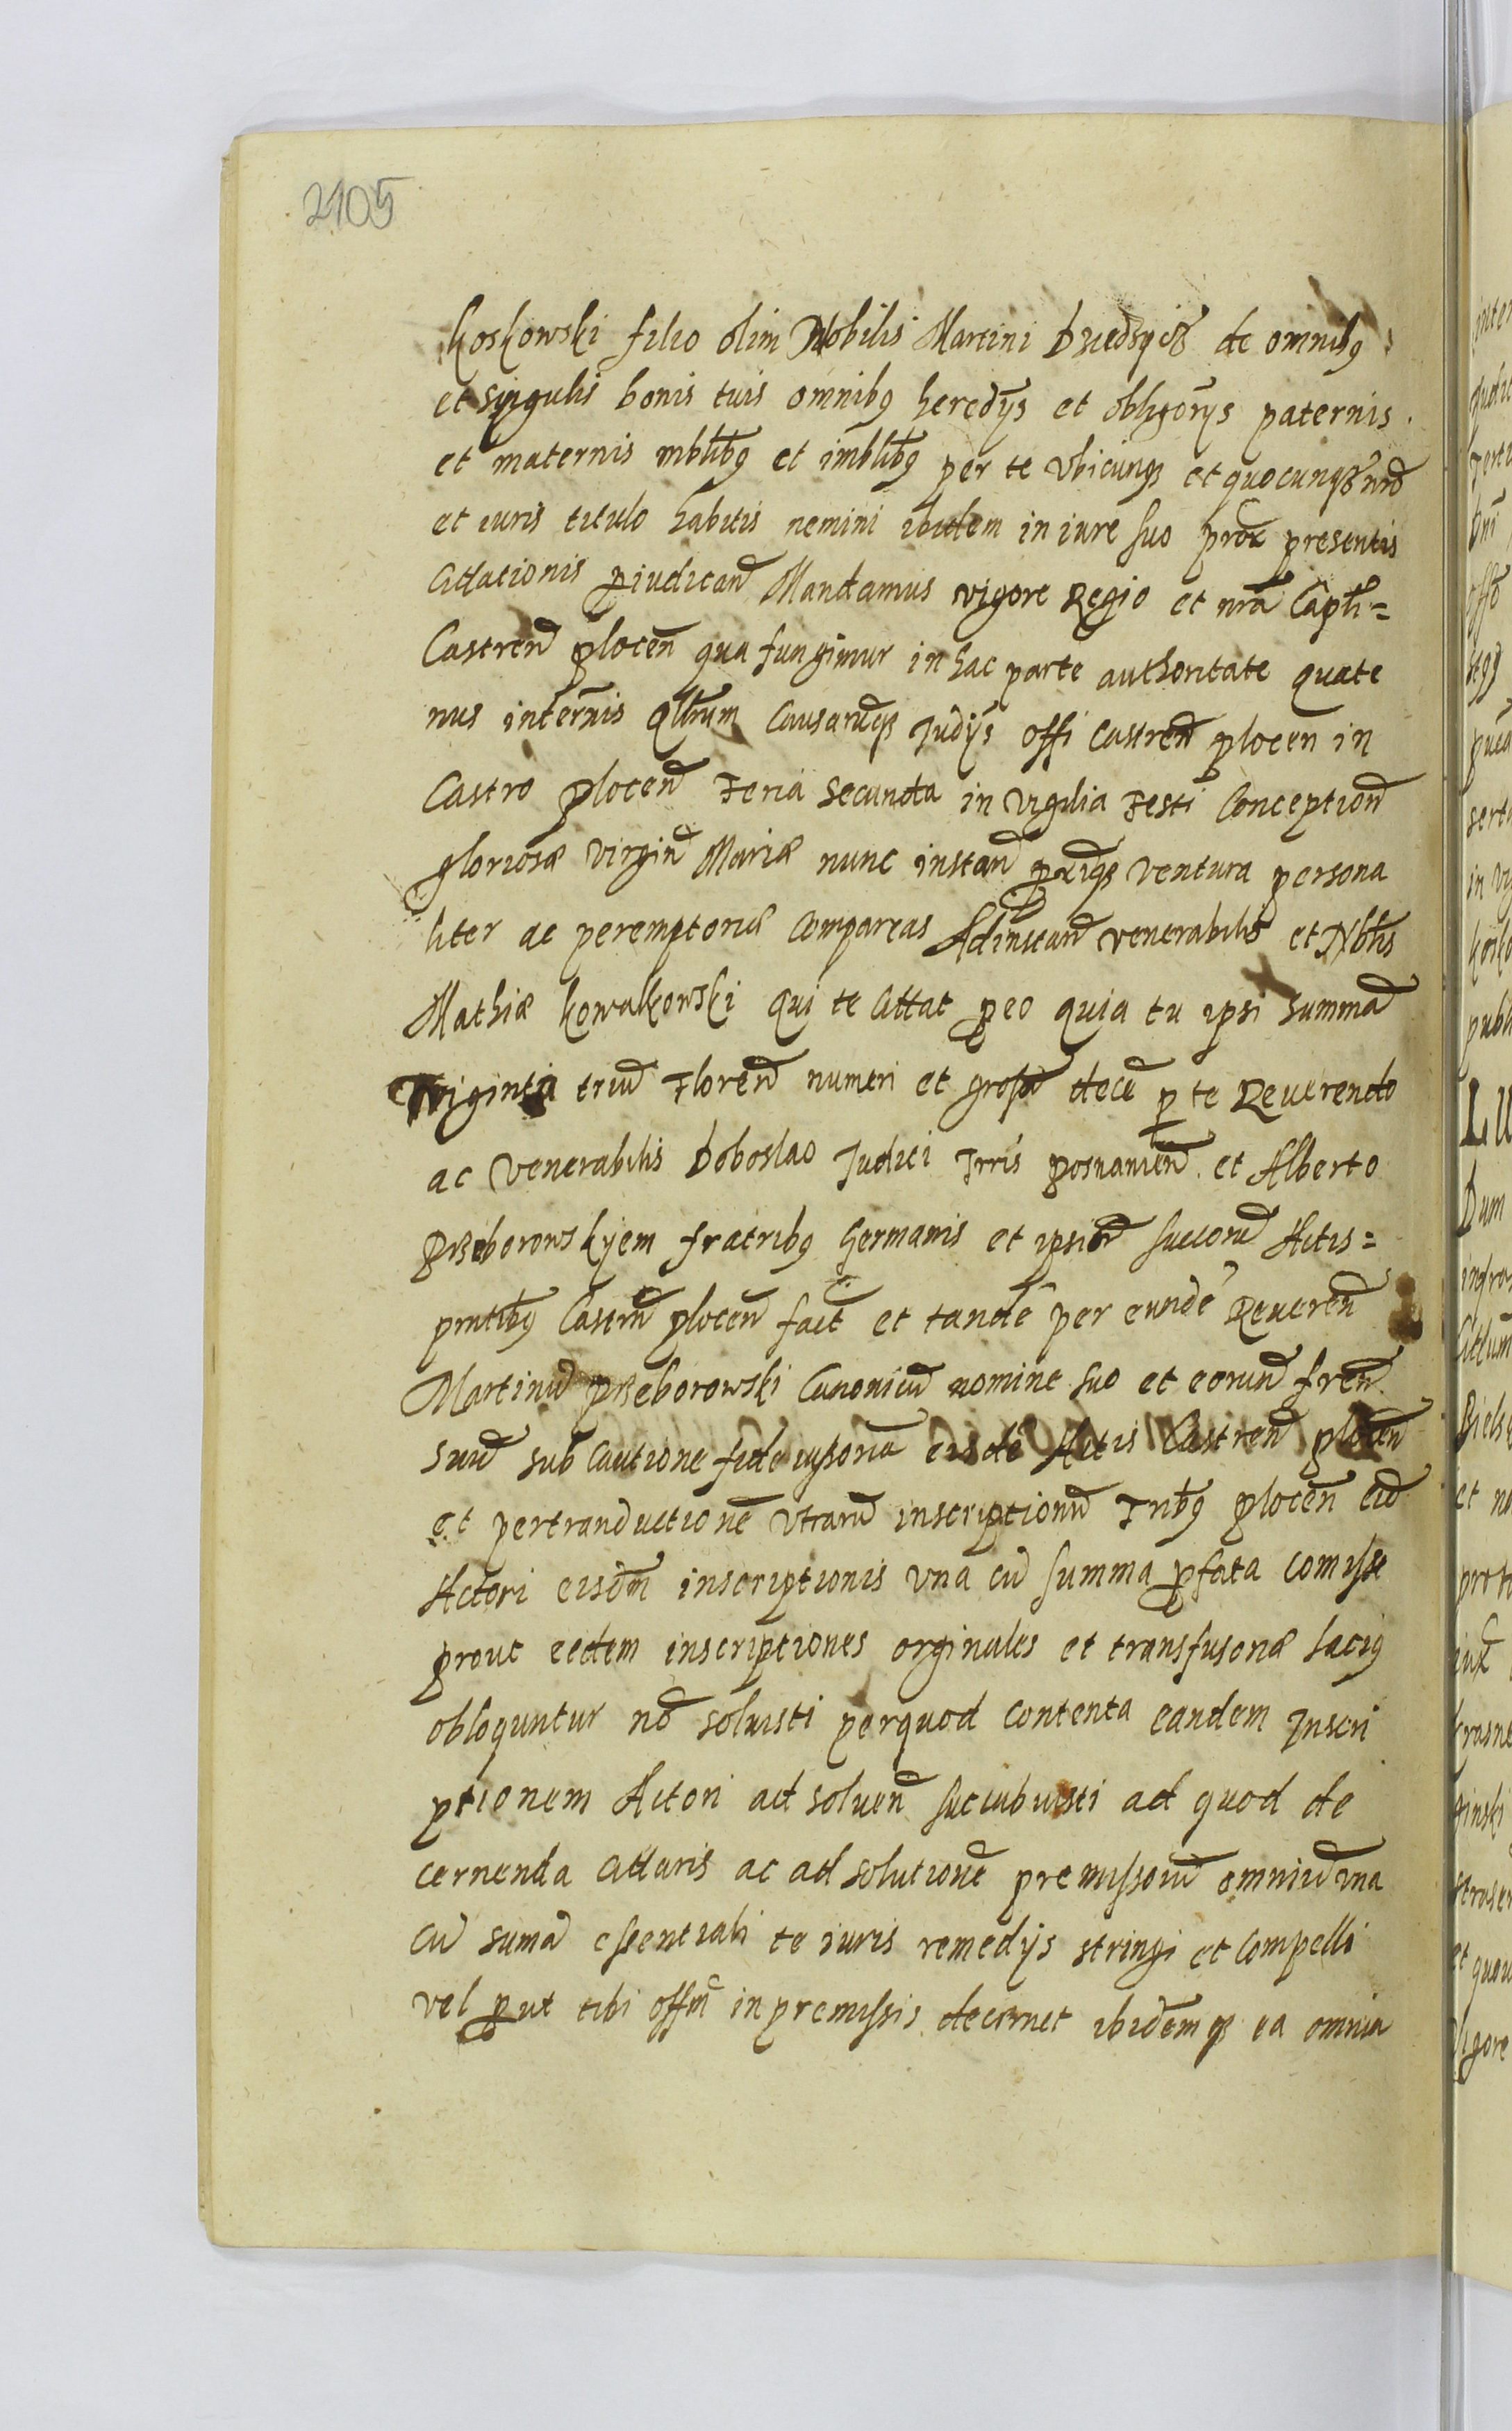 2105
Koskowski filio olim Nobilis Martini de omnibq
et singulis bonis tuis omnibq heredys et obligorys paternis
et maternis mblibq et imblibq per te vbicunqz et quocunqz
et iuris titulo habitis nemini ibidem in iure suo presentis
Citationis piudicand Mandamus vigore Regio et nra Capli=
Castren plocen qua fungimur in hac parte authoritate quate
nus in termis qllrum Causarumqz Judys offi Castren plocen in
Castro plocen Feria Secunda in vigilia Festi Conception
gloriosæ virgin Mariæ nunc instan ventura persona
liter ac peremptorie Compareas Adinstan venerabilis et Nblis
Mathiæ Kowalkowski qui te Cittat peo quia tu ipsi summa
Triginta trium Floren numeri et grossor dece p te Reuerendo
ac venerabilis Boboslao Judici Trris posnanien et Alberto
Przeborowskyem fratribq germanis et ipsior succoru Actis=
pntibq Castrn plocen fact et tande per eunde Reueren
Martinu przeborowski Canonicu nomine suo et eorund fren
suu sub Cautione fideiussoria eisde Actis Castren plocen
et pertranductione vtraru inscriptionu Tribq plocen eid
Actori eisdm inscriptionis vna cu summa pfata comisse
prout eedem inscriptiones orginales et transfusonæ laciq
obloquntur no soluisti perquod contenta eandem Inscri
ptionem Actori ad soluen succubuisti ad quod de
cernenda Cittaris ac ad solutione premissoru omniu vna
cu suma essentiali te iuris remedys stringi et Compelli
vel put tibi offm in premissis decernet ibidemqz ea omnia